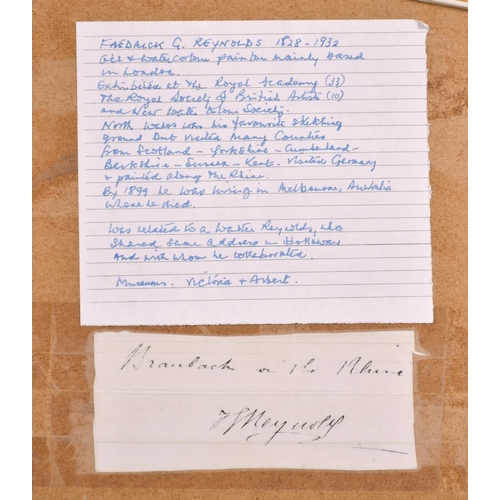 FREDRICK G. REYNOLDS 1828-1932
Oil & watercolour painter mainly based
in London.
Exhibited at the Royal Academy (33)
The Royal Society of British Artists (10)
and New Water Colour Society.
North Wales was his favourite sketching
ground but visited many Counties
from Scotland - Yorkshire - Cumberland -
Berkshire - Sussex - Kent. Visited Germany
& painted along the Rhine.
By 1899 he was living in Melbourne, Australia
where he died.
Was related to a Walter Reynolds, who
shared same address in Holloway
and with whom he collaborated.
Museums. Victoria & Albert.
Braubach on the Rhine
FGReynolds